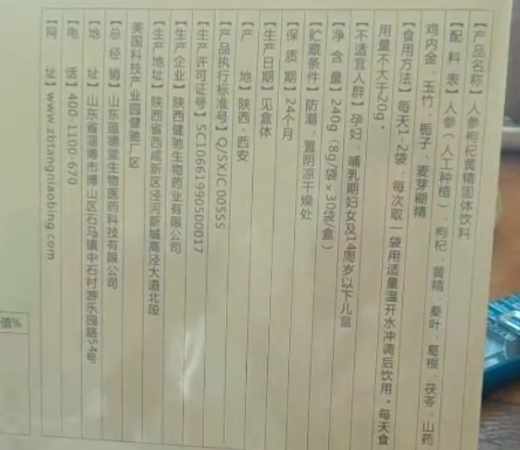 【产品名称】人参枸杞黄精固体饮料
【配 料 表】人参（人工种植）、枸杞、黄精、桑叶、葛根、茯苓、山药
鸡内金、玉竹、栀子、麦芽糊精
【食用方法】每天1-2袋，每次取一袋用适量温开水冲调后饮用。每天食
用量不大于20g。
【不适宜人群】孕妇、哺乳期妇女及14周岁以下儿童
【净 含 量】240g（8g/袋×30袋/盒）
【贮藏条件】防潮、置阴凉干燥处
【保 质 期】24个月
【生产日期】见盒体
【产 地】陕西·西安
【产品执行标准号】Q/SXJC 0055S
【生产许可证号】SC10661990500017
【生产企业】陕西健驰生物药业有限公司
【生产地址】陕西省西咸新区泾河新城高泾大道北段
美国科技产业园健驰厂区
【总 经 销】山东蕴德堂生物医药科技有限公司
【地 址】山东省淄博市博山区石马镇中石村游乐园路54号
【电 话】400-1100-670
【网 址】www.zbtangniaobing.com
值%